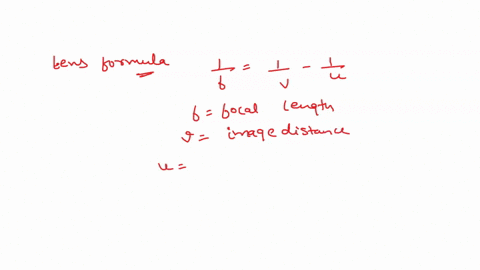 lens formula 1/f = 1/v - 1/u
f = focal length
v = image distance
u =